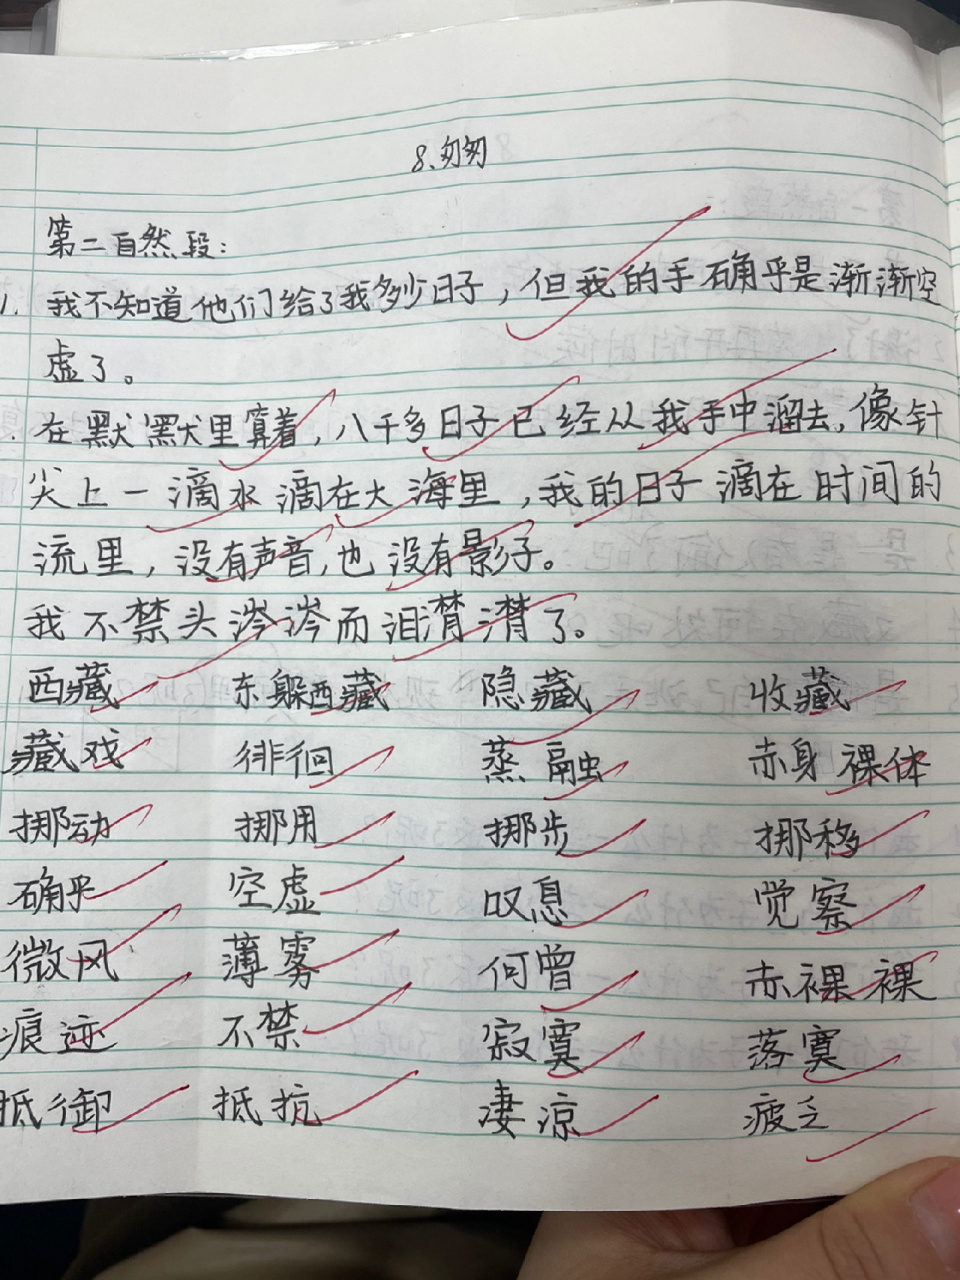 8、匆匆
第二自然段：
1. 我不知道他们给了我多少日子，但我的手确乎是渐渐空
虚了。
在默默里算着，八千多日子已经从我手中溜去，像针
尖上一滴水滴在大海里，我的日子滴在时间的
流里，没有声音，也没有影子。
我不禁头涔涔而泪潸潸了。
西藏 东躲西藏 隐藏 收藏
藏戏 徘徊 蒸融 赤身裸体
挪动 挪用 挪步 挪移
确乎 空虚 叹息 觉察
微风 薄雾 何曾 赤裸裸
痕迹 不禁 寂寞 落寞
抵御 抵抗 凄凉 疲乏